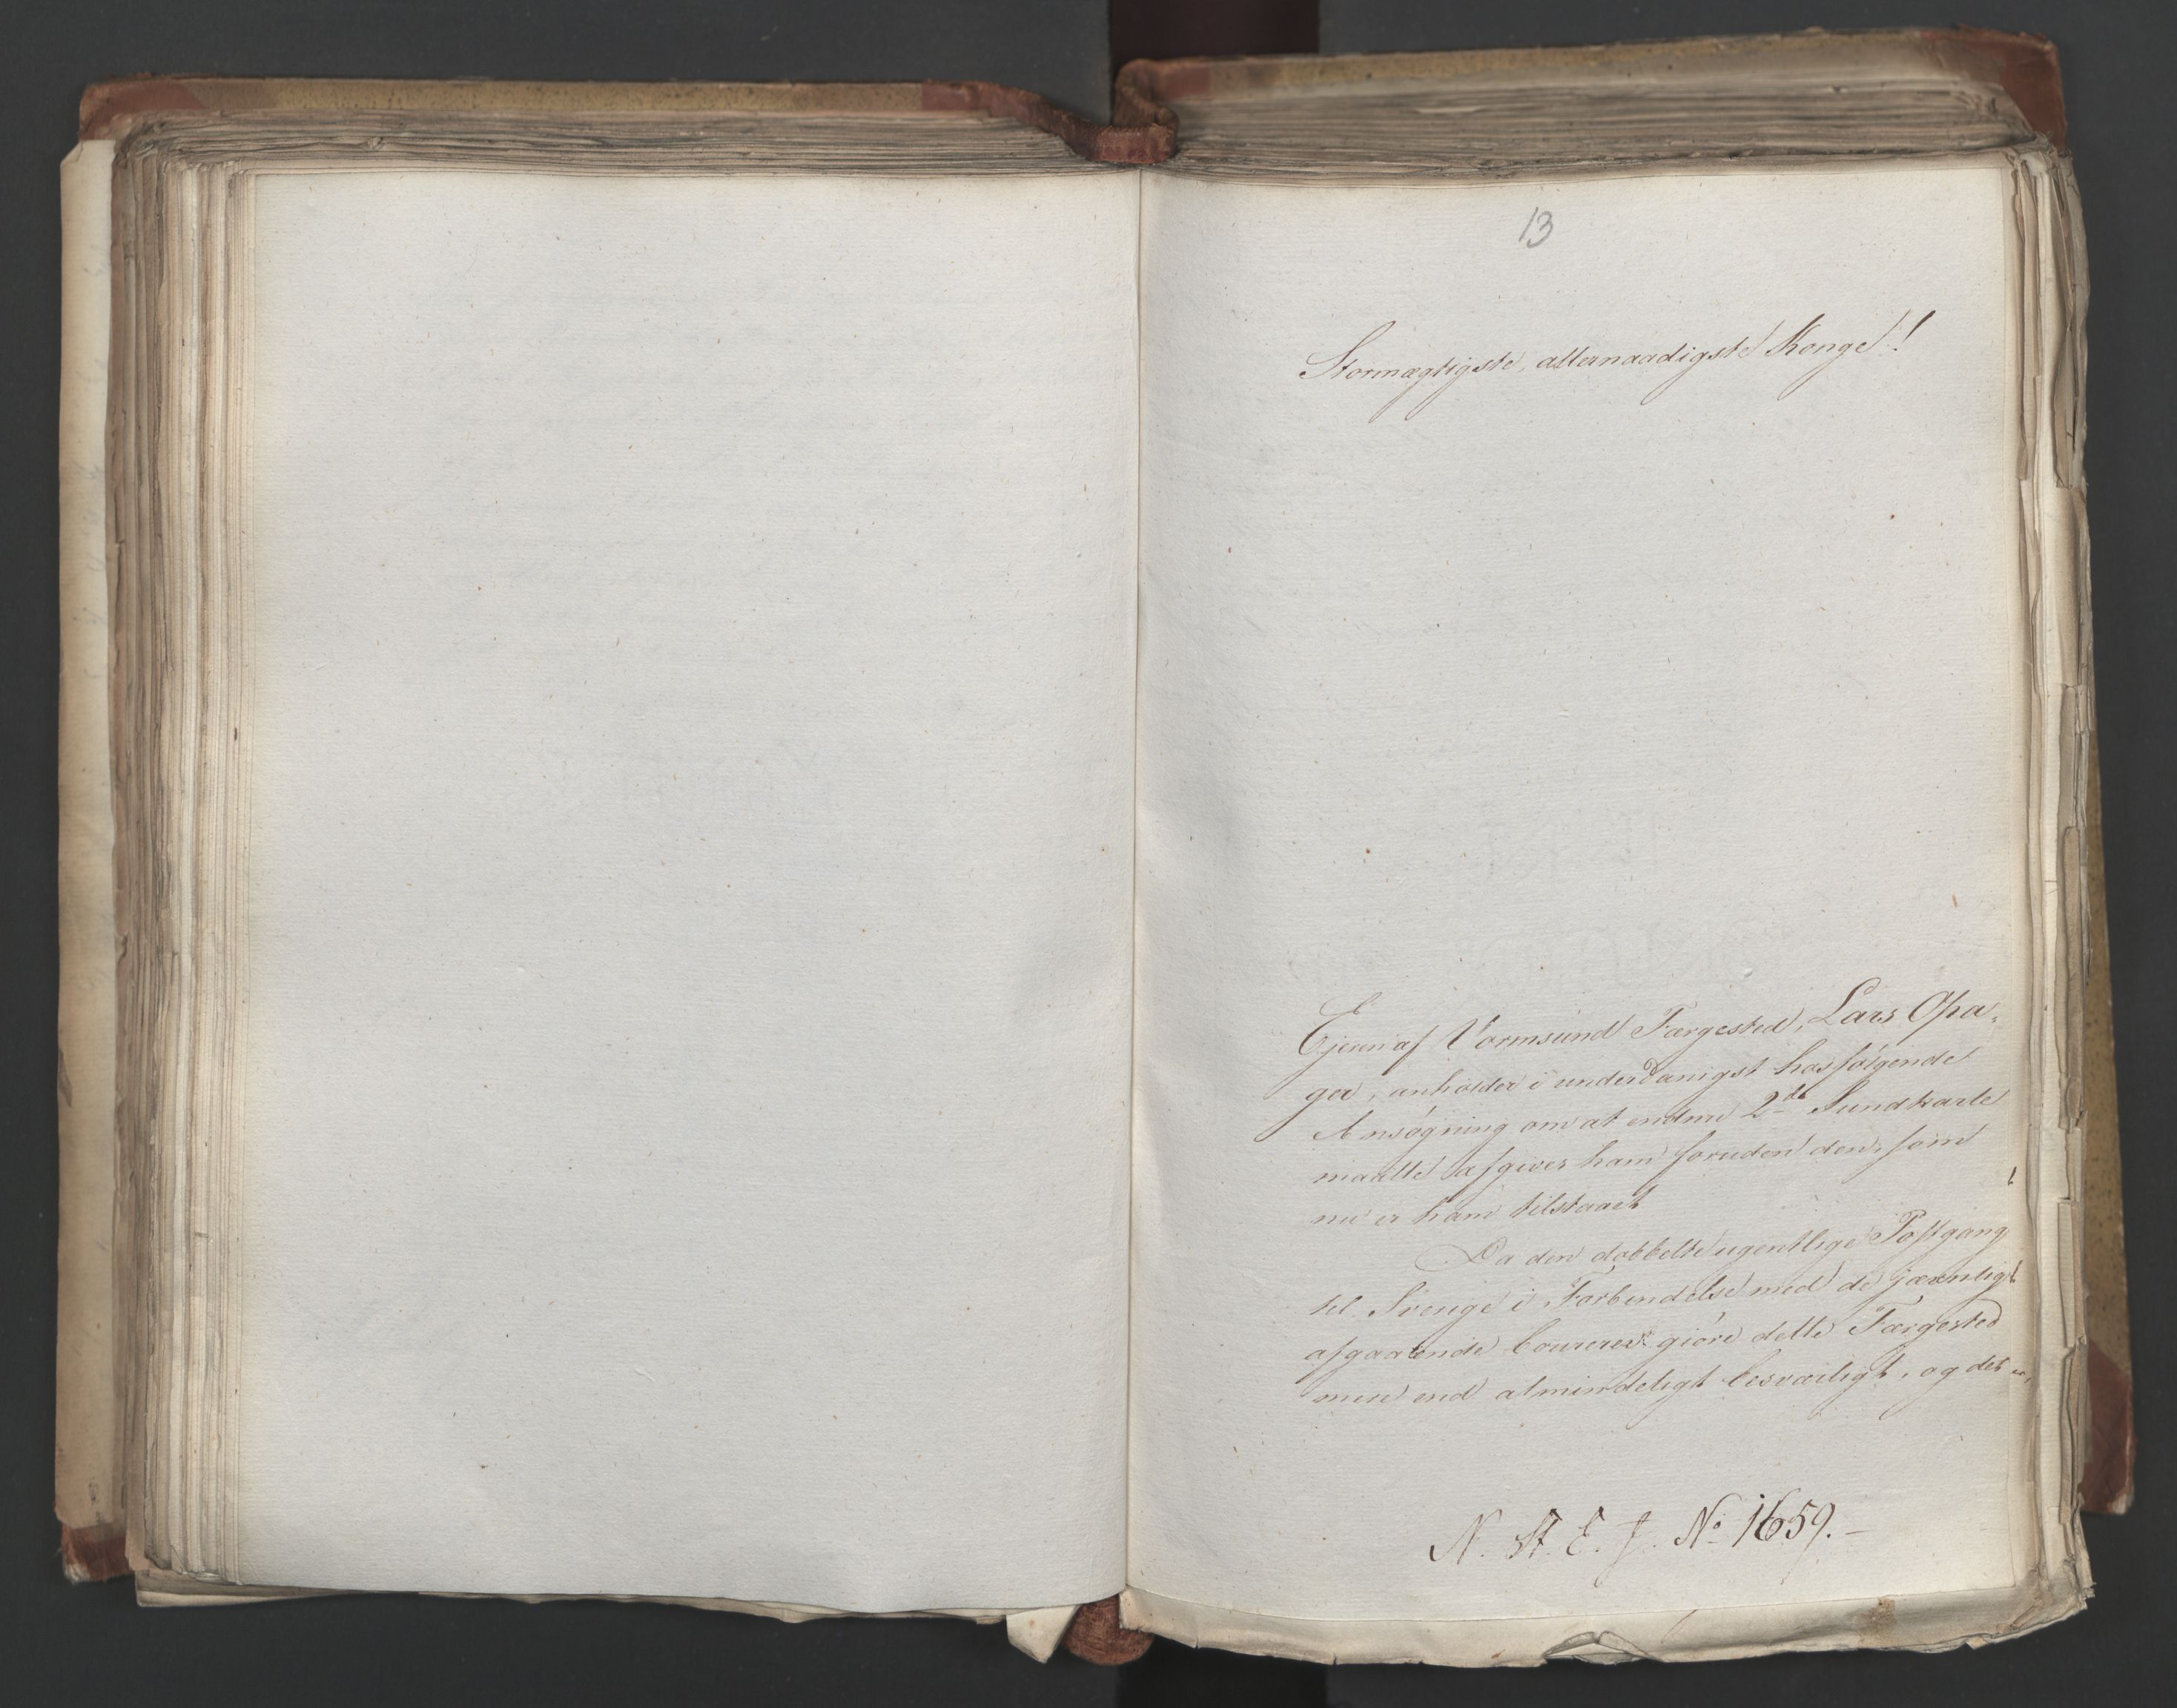 13
Stormægtigste, allernaadigste Konge!
Ejeren af Vormsund Færgested, Lars Opa-
ger, anholder i underdanigst hosfølgende
Ansøgning om at endnu 2de Sundkarle
maatte afgives ham foruden den, som
nu er ham tilstaaet
Da den dobbelte ugentlige Postgang
til Sverige i Forbindelse med de jævnligt
afgaaende Courerer giøre dette Færgested
mere end almindeligt besværligt, og det er,
N. St. E. J. No 1659.-